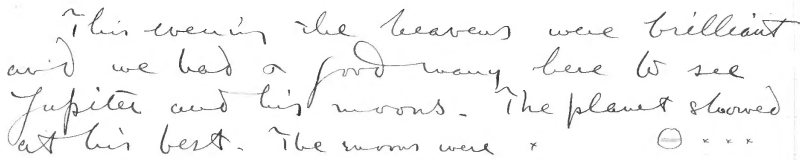 This evening the heavens were brilliant
and we had a good many here to see
Jupiter and his moons. The planet showed
at his best. The moons were × ⊖ × × ×